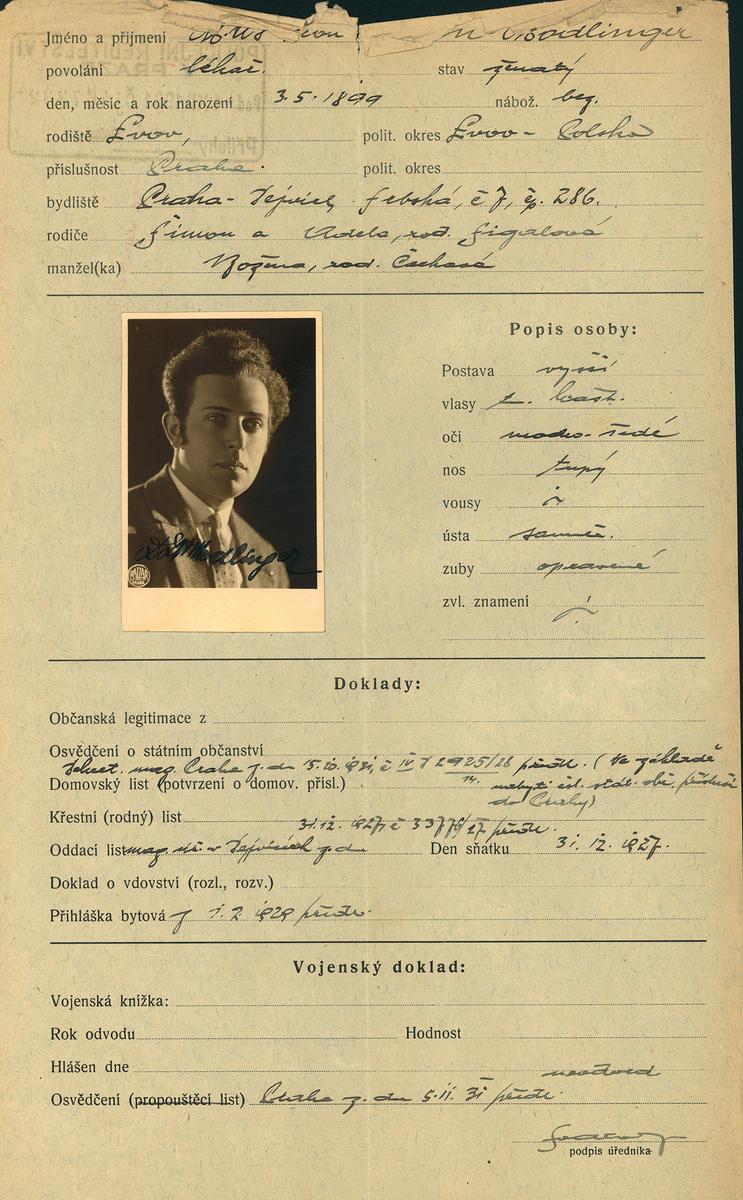 Jméno a přijmení
povolání lékař. stav ženatý
den, měsíc a rok narození 3.5.1899 nábož. bez.
rodiště Lvov, polit. okres Lvov - Polsko
příslušnost Praha. polit. okres
bydliště Praha - Dejvice, Srbská, č 7, čp. 286.
rodiče Šimon a Adela, roz. Sigalová
manžel(ka) Božena, roz.
Popis osoby:
Postava vyšší
vlasy t. kašt.
oči modro-šedé
nos tupý
vousy
ústa souměr.
zuby opravené
zvl. znamení
Doklady:
Občanská legitimace z
Osvědčení o státním občanství
mag. Praha z. dn 15.10. č IV
Domovský list (potvrzení o domov. přísl.)
do Prahy)
Křestní (rodný) list
31.12. 1927, č
Oddací list mag. v Dejvicích z. dn Den sňatku 31. 12. 1927.
Doklad o vdovství (rozl., rozv.)
Přihláška bytová z 1. 2 1929 předl.
Vojenský doklad:
Vojenská knížka:
Rok odvodu Hodnost
Hlášen dne
neodved
Osvědčení (propouštěcí list) Praha z. dn 5.11. 31 předl.
podpis úředníka